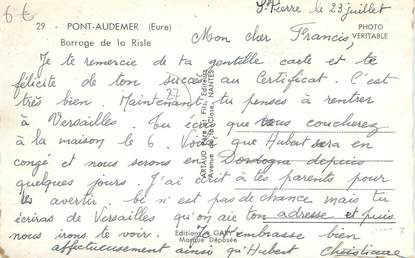 6€
St Pierre le 23 juillet
29 - PONT-AUDEMER (Eure)
Barrage de la Risle
PHOTO
VERITABLE
Mon cher Francis,
Je te remercie de ta gentille carte et te
félicite de ton succès au Certificat. C'est
très bien. Maintenant tu penses à rentrer
à Versailles. Tu écris que vous coucherez
à la maison le 6. Voilà que Hubert sera en
congé et nous serons en Dordogne depuis
quelques jours. J'ai écrit à tes parents pour
les avertir. Ce n'est pas de chance mais tu
écriras de Versailles qu'on aie ton adresse et puis
nous irons te voir. Je t'embrasse bien
affectueusement ainsi qu'Hubert Christiane
27
ARTAUD Père et Fils, Editeurs
NANTES
Editions GABY
Marque Déposée